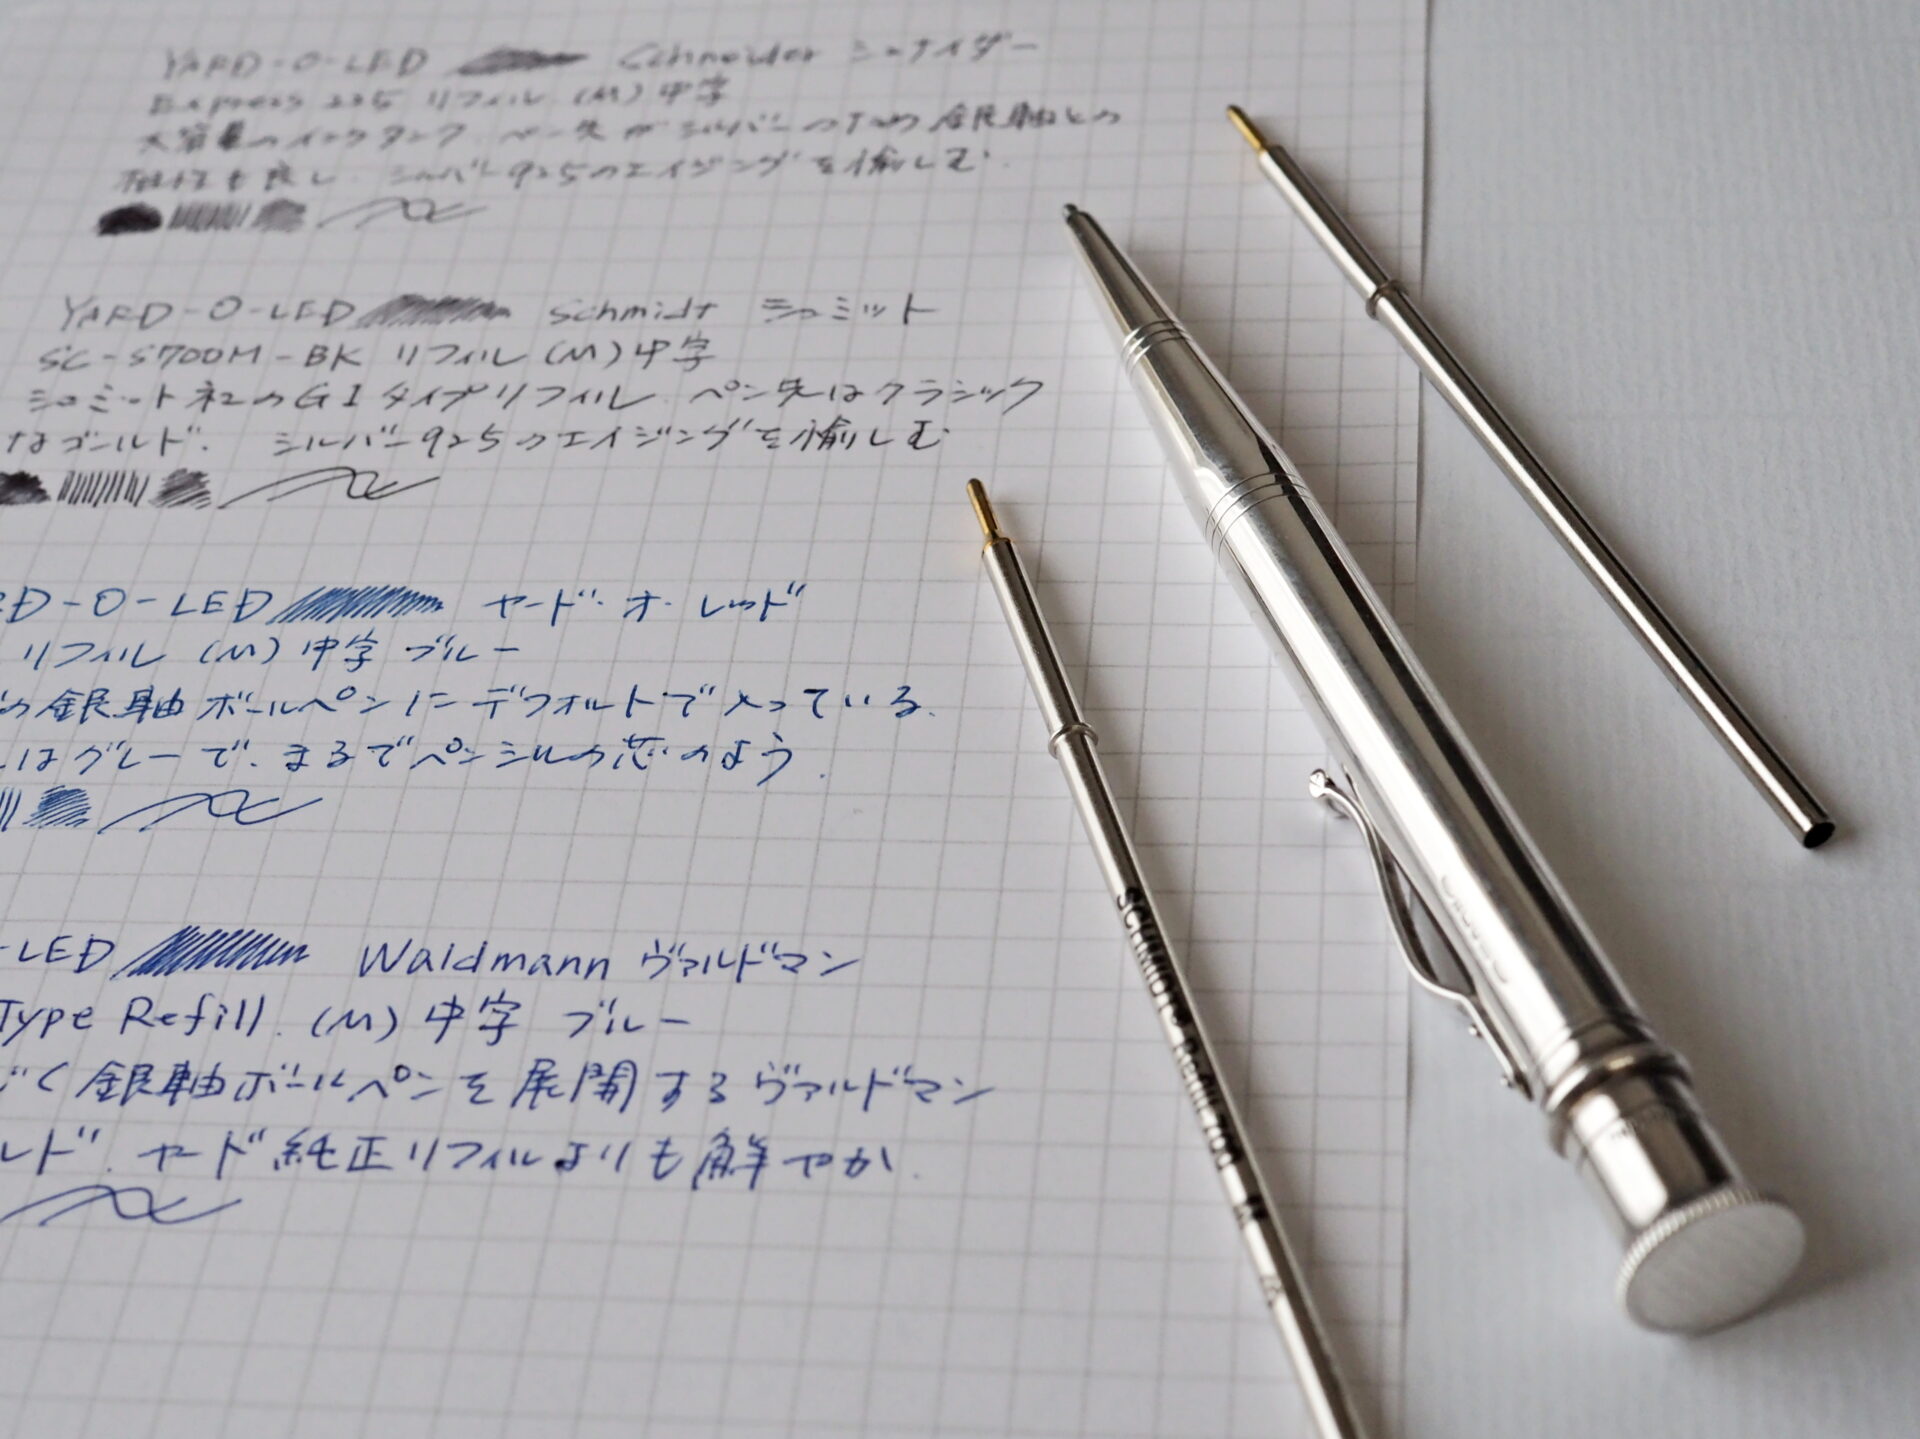 YARD-O-LED Schneider シュナイダー
Express 225 リフィル (M) 中字
大容量のインクタンク. ペン先がシルバーのため 銀軸との
相性も良し. シルバー925のエイジングを愉しむ.
YARD-O-LED Schmidt シュミット
SC-S700M-BK リフィル (M) 中字
シュミット社のG1タイプリフィル. ペン先はクラシック
なゴールド. シルバー925のエイジングを愉しむ
RD-O-LED ヤード・オ・レッド
リフィル (M) 中字 ブルー
の銀軸ボールペンにデフォルトで入っている.
はグレーで、まるでペンシルの芯のよう.
-LED Waldmann ヴァルドマン
Type Refill. (M) 中字 ブルー
じく銀軸ボールペンを展開するヴァルドマン
ルド. ヤード純正リフィルよりも鮮やか.
Refill 700 M